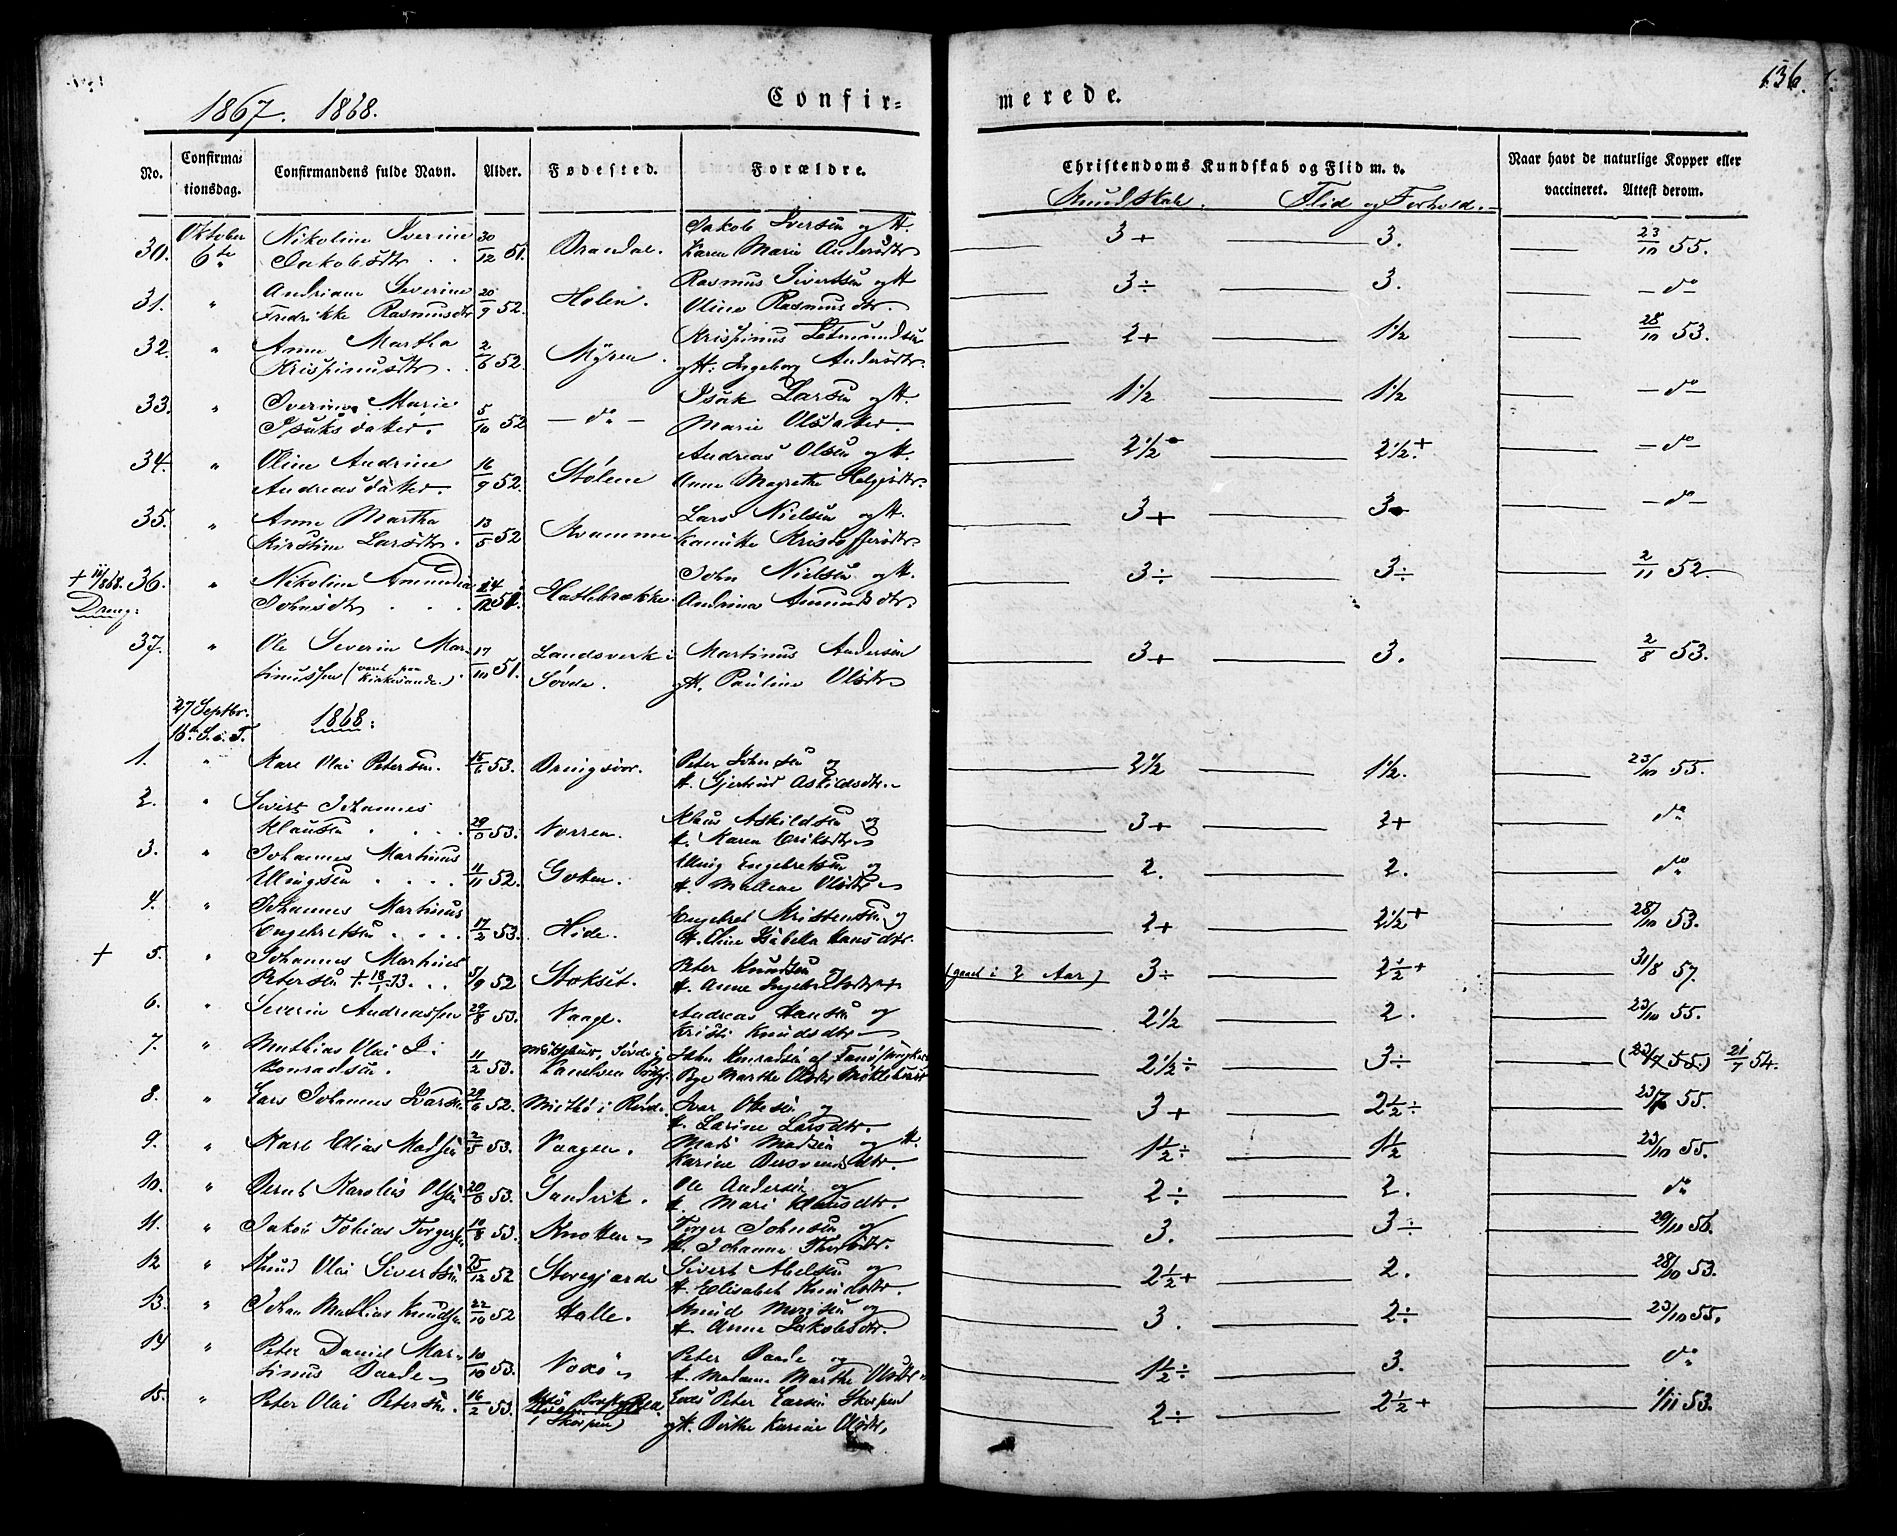 136.
1867. 1868.
Confir=
merede.
No.
Confirma=
tionsdag.
Confirmandens fulde Navn.
Alder.
Fødested.
Forældre.
Christendoms Kundskab og Flid m. v.
Naar havt de naturlige Kopper eller
vaccineret. Attest derom.
Kundskab. Flid og Forhold.
30. Oktober Nikoline Iverine 30/12 51. Brandal. Jakob Iversen og H. 3+ 3. 23/10 55.
6te Jakobsdtr Karen Marie Andersdtr
31. " Andriane Severine 20/9 52. Holen. Rasmus Sivertsen og H 3÷ 3. - do -
Fredrikke Rasmusdtr Oline Rasmusdtr.
32. " Anne Martha 2/6 52. Myren. Krispinus 2+ 1½ 28/10 53.
Krispinusdtr. og H. Ingeborg Andersdtr.
33. " Iverine Marie 5/10 52 - do - Isak Larsen og H. 1½ 1½ - do -
Isaksdatter. Marie Olsdatter.
34. " Oline Andrine 16/9 52. Stølene Andreas Olsen og H. 2½ 2½+ - do -
Andreasdatter. Anne Magrethe
35. " Anne Martha 13/5 52 Kvamme Lars Nielsen og H. 3+ 3 - do -
Kirstine Larsdtr. Kristoffersdtr.
+ 11/868. 36. " Nikoline Amunda 51. Hatlebrække. John Nielsen og H. 3÷ 3÷ 2/11 52.
Johnsdtr Andrine Amundsdtr.
37. " Ole Severin Mar- 17/10 51. Landsverk i Martinus Andersen 3+ 3. 2/8 53.
tinussen Søvde. og H. Pauline Olsdtr
27 Septbr. 1868:
16de S. e. T.
1. " Karl Olai Petersen. 15/6 53. Peter Johnsen og 2½ 1½. 23/10 55.
H. Gjertrud Askildsdtr.
2. " Sivert Johannes Klaus Askildsen og
Klausen 53. Norren. H. Maren Eriksdtr 3+ 2+ do
3. " Johannes Martinus Elling Engebretsen og
Ellingsen 11/11 52. Goten. H. Mallene Olsdtr 2. 2. do
4. " Johannes Martinus Engebret Kristensen og
Engebretsen 17/2 53. Hide. H. Eline Isabella Hansdtr. 2+ 2½+ 28/10 53.
+ 5. " Johannes Martinus Peter Knudsen og (gaaet i 2 Aar) 3÷ 2½+ 31/8 57.
Petersen 5/9 52 Stokset. H. Anne Ingebretsdtr
6. " Severin Andreassen 29/8 53. Vaage. Andreas Hansen og 2½ 2. 23/10 55.
Kristi Knudsdtr
7. " Mathias Olai J. 2½÷ 3÷ 21/7 54.
Konradsen. 11/2 53. Marthe Olsdtr
8. " Lars Johannes Ivarsen 52. Ivar og 3+ 2½÷ 55.
H. Larine Larsdtr.
9. " Karl Elias Madsen 2/5 53. Vaagen. Mads Madsen og H. 1½÷ 1½ 23/10 55.
Karine
10. " Bernt Karolius Olsen 53. Sandvik. Ole Andersen og 2÷ 2. do
H. Mari Klausdtr.
11. " Jakob Tobias Torgersen 10/8 53. Knotten Torger Johnsen og 3. 3÷ 29/10 56.
H. Johanne
12 " Knud Olai Sivertsen 25/12 52 Storegjærde Sivert Abelsen og 2½+ 2. 28/10 53.
H. Elisabet Knudsdtr.
13. " Johan Mathias Knudsen 22/10 52 Halle. Knud og 3. 2÷ 23/10 55.
H. Anne Jakobsdtr.
14 " Peter Daniel Mar- 10/10 53. Peter Daade og 1½÷ 3. do
tinus Daade H. Madame Marthe
15. " Peter Olai Petersen. 16/2 53. Peter Larsen Skorpen 2÷ 2½+ 1/11 53.
(Skorpen) og H. Berthe Karine Olsdtr,